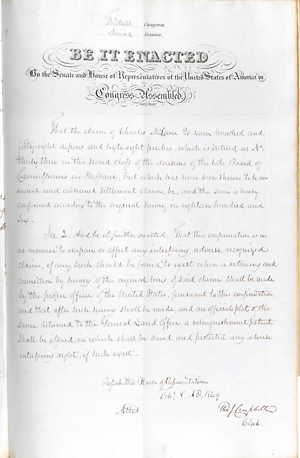 Thirtieth Congress
Second Session
BE IT ENACTED
By the Senate and House of Representatives of the United States of America in
Congress Assembled
That the claim of Charles McLane to seven hundred and
fifty eight arpens and sixty eight perches, which is entered as No
thirty three in the second class of the decisions of the late Board of
Commissioners in Missouri, but which has since been shown to be an
ancient and confirmed settlement claim, be, and the same is hereby
confirmed according to the original survey in eighteen hundred and
six.
Sec 2. And be it further enacted, That this confirmation is in
no manner to impair or affect any interfering, adverse recognized
claims, if any such should be found to exist when a retracing and
connection by survey of the original lines of said claim shall be made
by the proper officer of the United States, pursuant to this confirmation,
and that after such survey shall be made, and an official plat of the
same returned to the General Land Office, a relinquishment patent
shall be issued, in which shall be saved and protected any adverse
interfering right, if such exist.
Passed the House of Representatives
Feby 8. A.D. 1849
Attest Tho J Campbell
Clerk.